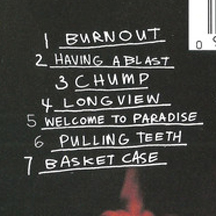 1 BURNOUT
2 HAVING A BLAST
3 CHUMP
4 LONGVIEW
5 WELCOME TO PARADISE
6 PULLING TEETH
7 BASKET CASE
0